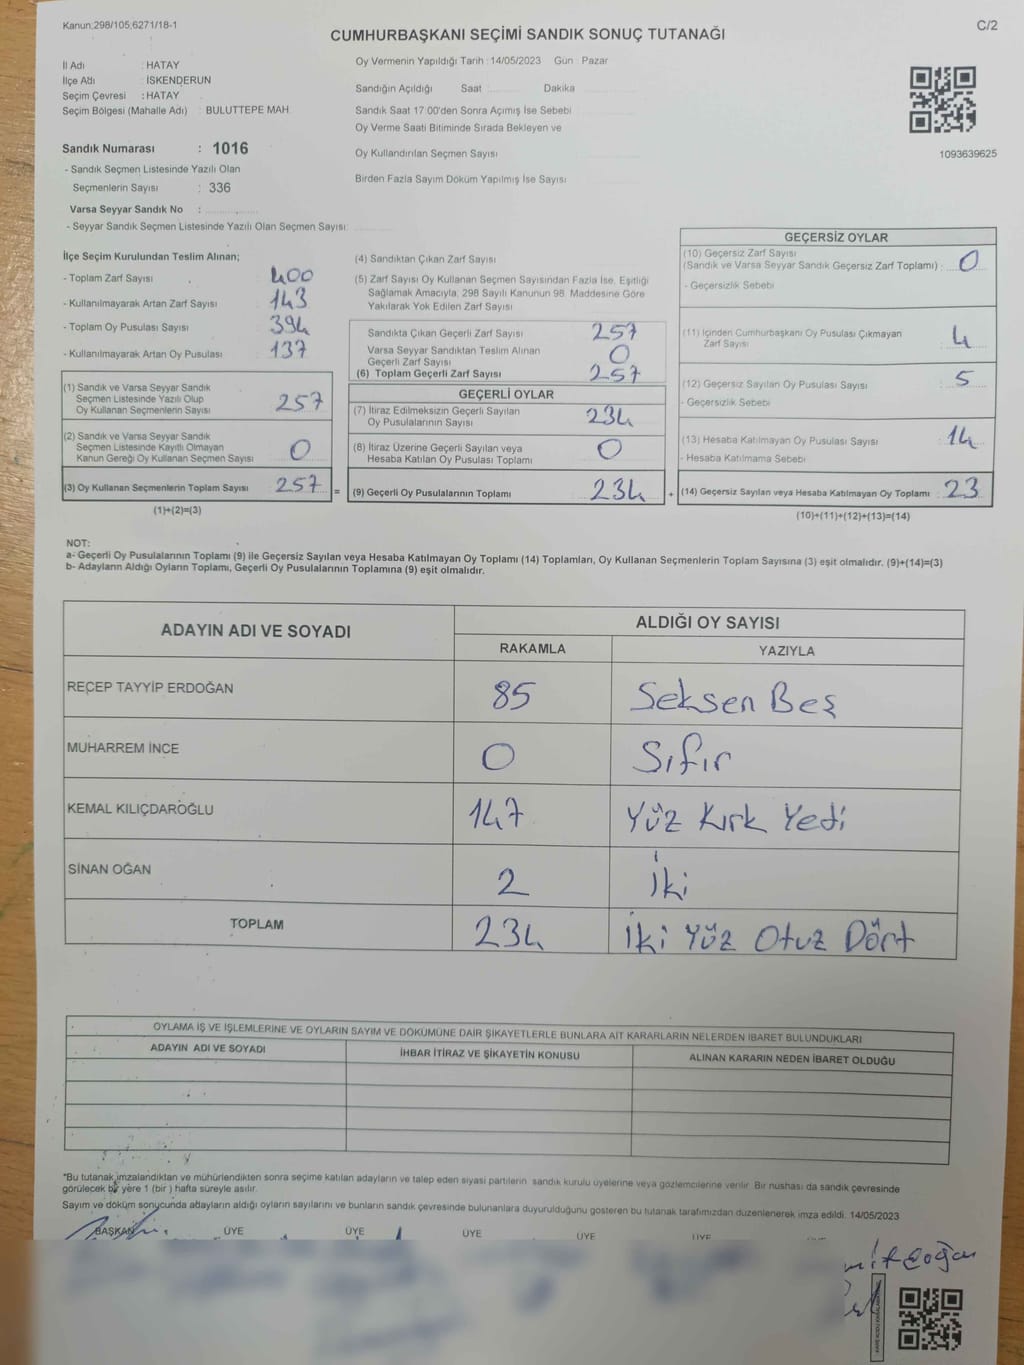 Kanun;298/105;6271/18-1
C/2
CUMHURBAŞKANI SEÇİMİ SANDIK SONUÇ TUTANAĞI
İl Adı : HATAY
İlçe Adı : İSKENDERUN
Seçim Çevresi : HATAY
Seçim Bölgesi (Mahalle Adı) : BULUTTEPE MAH.
Sandık Numarası : 1016
- Sandık Seçmen Listesinde Yazılı Olan
Seçmenlerin Sayısı : 336
Varsa Seyyar Sandık No :
- Seyyar Sandık Seçmen Listesinde Yazılı Olan Seçmen Sayısı:
Oy Vermenin Yapıldığı Tarih : 14/05/2023 Gün : Pazar
Sandığın Açıldığı Saat Dakika
Sandık Saat 17:00'den Sonra Açımış İse Sebebi
Oy Verme Saati Bitiminde Sırada Bekleyen ve
Oy Kullandırılan Seçmen Sayısı
Birden Fazla Sayım Döküm Yapılmış İse Sayısı
1093639625
İlçe Seçim Kurulundan Teslim Alınan;
- Toplam Zarf Sayısı 400
- Kullanılmayarak Artan Zarf Sayısı 143
- Toplam Oy Pusulası Sayısı 394
- Kullanılmayarak Artan Oy Pusulası 137
(1) Sandık ve Varsa Seyyar Sandık
Seçmen Listesinde Yazılı Olup
Oy Kullanan Seçmenlerin Sayısı 257
(2) Sandık ve Varsa Seyyar Sandık
Seçmen Listesinde Kayıtlı Olmayan
Kanun Gereği Oy Kullanan Seçmen Sayısı 0
(3) Oy Kullanan Seçmenlerin Toplam Sayısı 257 =
(1)+(2)=(3)
(4) Sandıktan Çıkan Zarf Sayısı
(5) Zarf Sayısı Oy Kullanan Seçmen Sayısından Fazla İse, Eşitliği
Sağlamak Amacıyla, 298 Sayılı Kanunun 98. Maddesine Göre
Yakılarak Yok Edilen Zarf Sayısı
Sandıkta Çıkan Geçerli Zarf Sayısı 257
Varsa Seyyar Sandıktan Teslim Alınan
Geçerli Zarf Sayısı 0
(6) Toplam Geçerli Zarf Sayısı 257
GEÇERLİ OYLAR
(7) İtiraz Edilmeksizin Geçerli Sayılan
Oy Pusulalarının Sayısı 234
(8) İtiraz Üzerine Geçerli Sayılan veya
Hesaba Katılan Oy Pusulası Toplamı 0
(9) Geçerli Oy Pusulalarının Toplamı 234 +
GEÇERSİZ OYLAR
(10) Geçersiz Zarf Sayısı
(Sandık ve Varsa Seyyar Sandık Geçersiz Zarf Toplamı) : 0
- Geçersizlik Sebebi
(11) İçinden Cumhurbaşkanı Oy Pusulası Çıkmayan
Zarf Sayısı 4
(12) Geçersiz Sayılan Oy Pusulası Sayısı : 5
- Geçersizlik Sebebi
(13) Hesaba Katılmayan Oy Pusulası Sayısı : 14
- Hesaba Katılmama Sebebi
(14) Geçersiz Sayılan veya Hesaba Katılmayan Oy Toplamı : 23
(10)+(11)+(12)+(13)=(14)
NOT:
a- Geçerli Oy Pusulalarının Toplamı (9) ile Geçersiz Sayılan veya Hesaba Katılmayan Oy Toplamı (14) Toplamları, Oy Kullanan Seçmenlerin Toplam Sayısına (3) eşit olmalıdır. (9)+(14)=(3)
b- Adayların Aldığı Oyların Toplamı, Geçerli Oy Pusulalarının Toplamına (9) eşit olmalıdır.
ADAYIN ADI VE SOYADI
ALDIĞI OY SAYISI
RAKAMLA YAZIYLA
RECEP TAYYİP ERDOĞAN 85 Seksen Beş
MUHARREM İNCE 0 Sıfır
KEMAL KILIÇDAROĞLU 147 Yüz Kırk Yedi
SİNAN OĞAN 2 İki
TOPLAM 234 İki Yüz Otuz Dört
OYLAMA İŞ VE İŞLEMLERİNE VE OYLARIN SAYIM VE DÖKÜMÜNE DAİR ŞİKAYETLERLE BUNLARA AİT KARARLARIN NELERDEN İBARET BULUNDUKLARI
ADAYIN ADI VE SOYADI İHBAR İTİRAZ VE ŞİKAYETİN KONUSU ALINAN KARARIN NEDEN İBARET OLDUĞU
*Bu tutanak imzalandıktan ve mühürlendikten sonra seçime katılan adayların ve talep eden siyasi partilerin sandık kurulu üyelerine veya gözlemcilerine verilir. Bir nushası da sandık çevresinde
görülecek bir yere 1 (bir ) hafta süreyle asılır.
Sayım ve döküm sonucunda adayların aldığı oyların sayılarını ve bunların sandık çevresinde bulunanlara duyurulduğunu gösteren bu tutanak tarafımızdan düzenlenerek imza edildi. 14/05/2023
BAŞKAN ÜYE ÜYE ÜYE ÜYE ÜYE